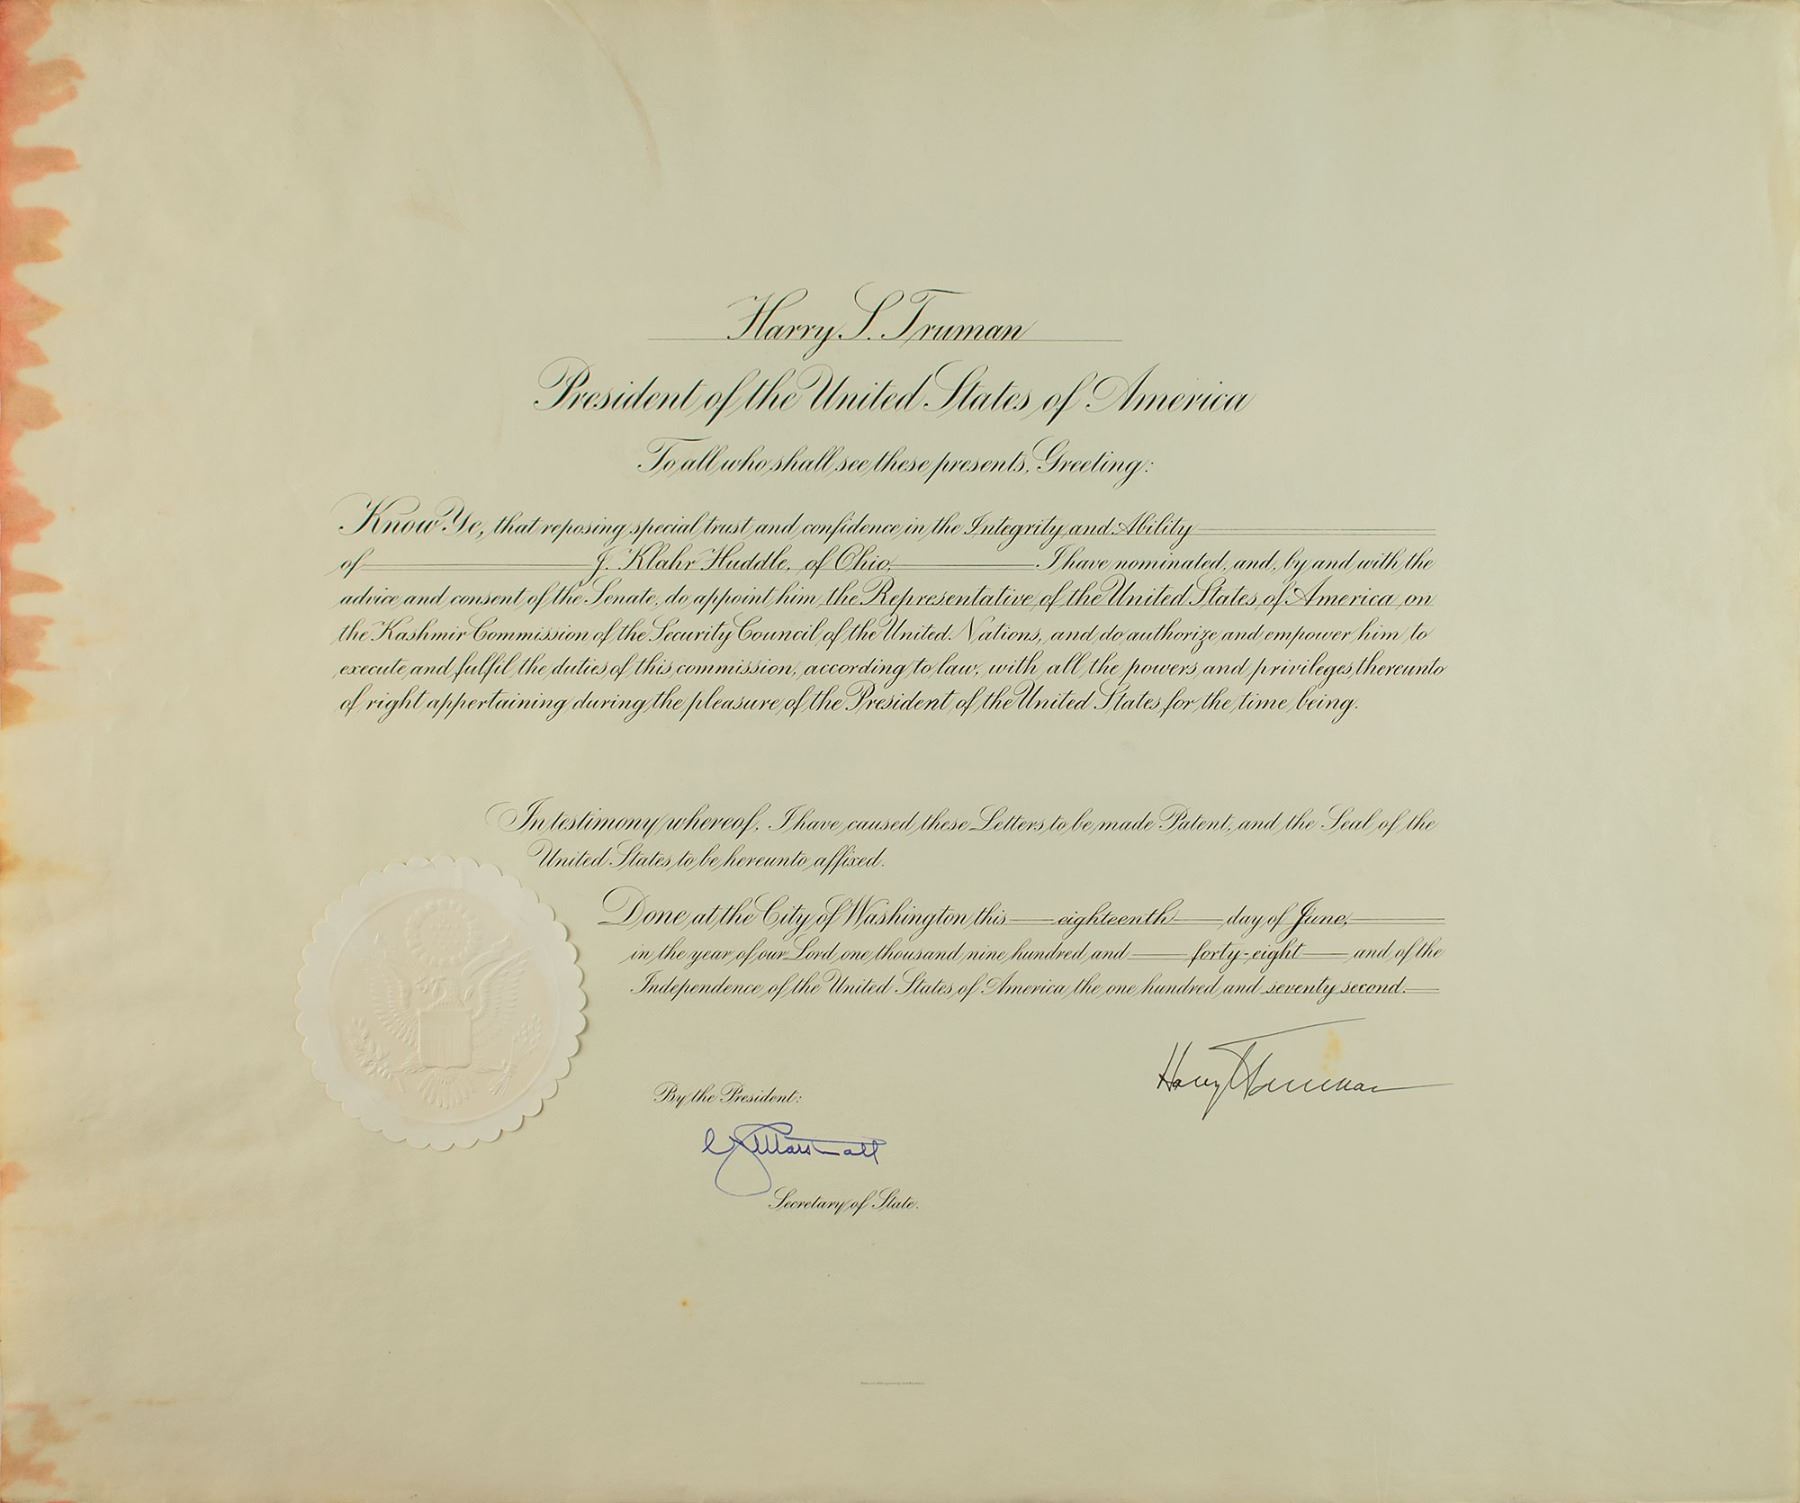 Harry S. Truman
President of the United States of America
To all who shall see these presents, Greeting:
Know Ye, that reposing special trust and confidence in the Integrity and Ability
of J. Klahr Huddle, of Ohio, I have nominated, and, by and with the
advice and consent of the Senate, do appoint him the Representative of the United States of America on
the Kashmir Commission of the Security Council of the United Nations, and do authorize and empower him to
execute and fulfil the duties of this commission, according to law, with all the powers and privileges thereunto
of right appertaining during the pleasure of the President of the United States for the time being.
In testimony whereof, I have caused these Letters to be made Patent, and the Seal of the
United States to be hereunto affixed.
Done at the City of Washington this eighteenth day of June,
in the year of our Lord one thousand nine hundred and forty-eight and of the
Independence of the United States of America the one hundred and seventy second.
Harry Truman
By the President:
G. C. Marshall
Secretary of State.